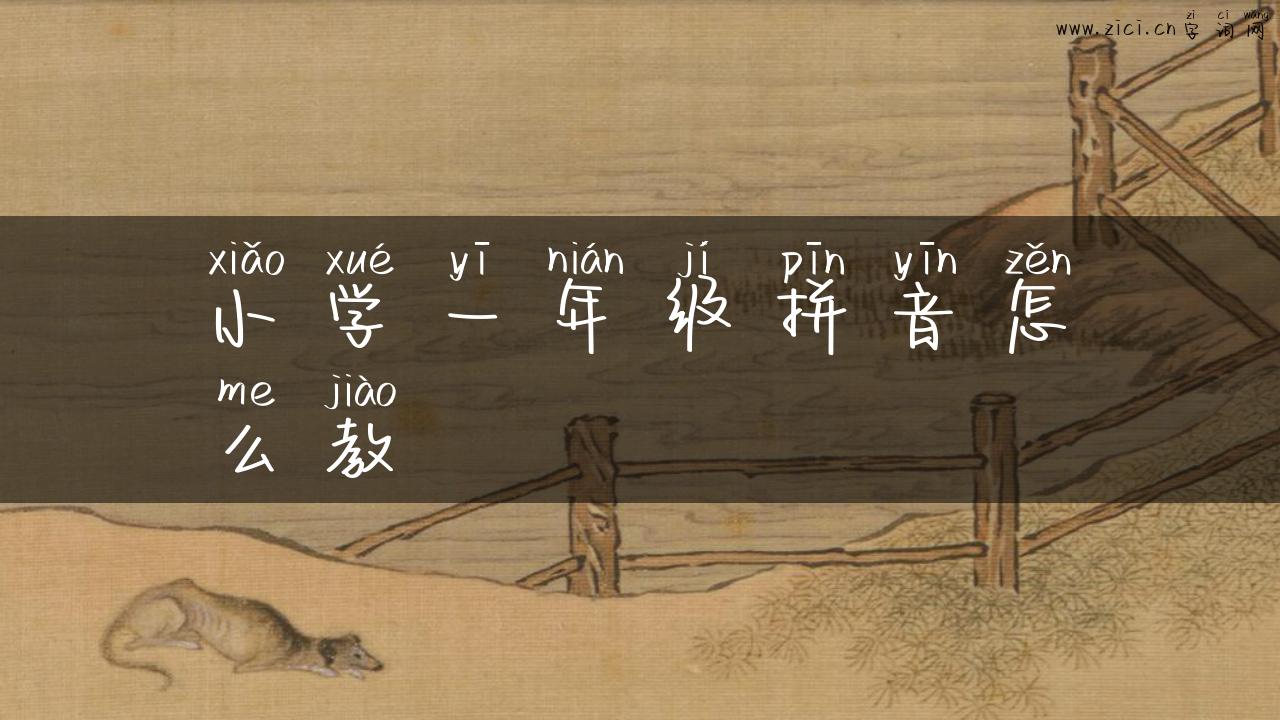 zi ci wang
www.zici.cn 字词网
xiǎo xué yī nián jí pīn yīn zěn
小学一年级拼音怎
me jiào
么教